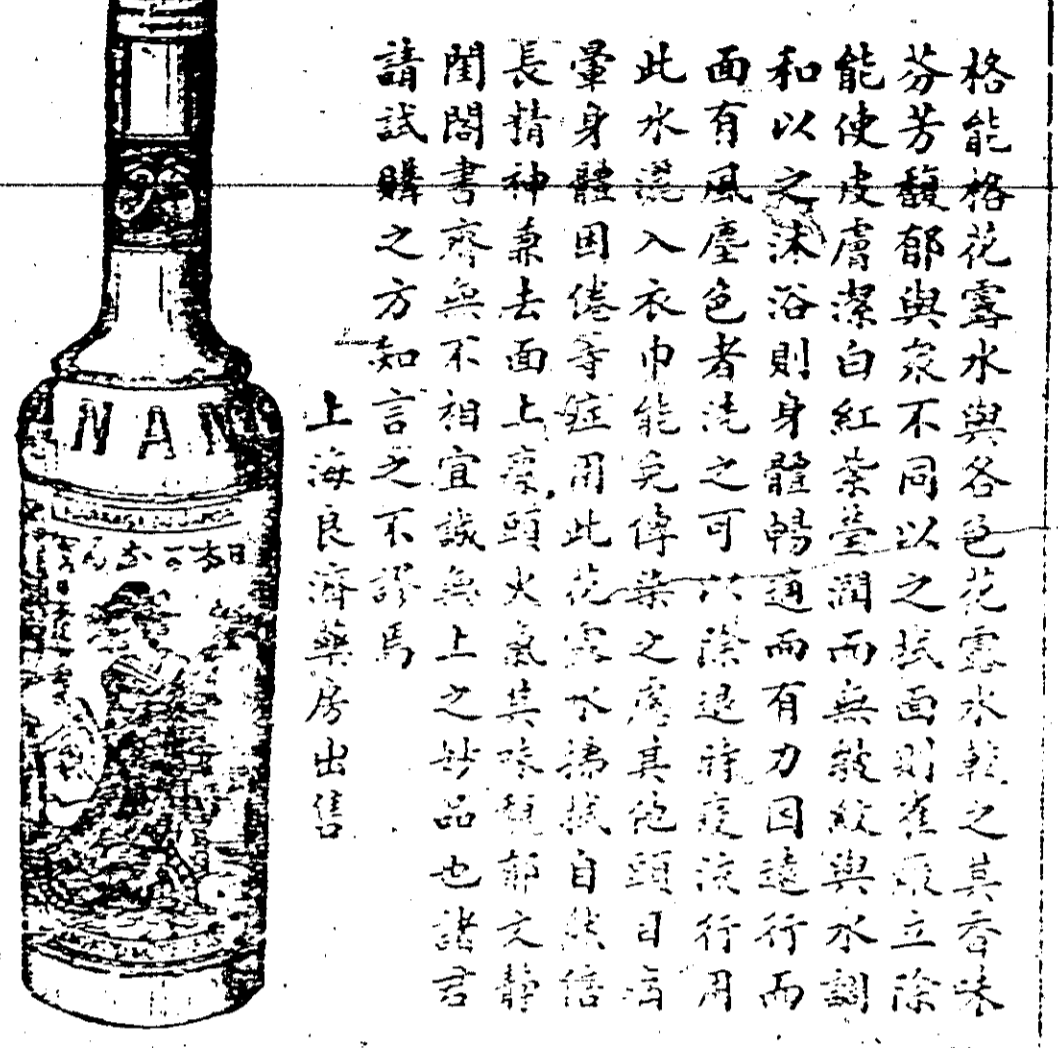 格能格花露水與各色花露水較之其香味
芬芳馥郁與衆不同以之拭面則雀斑立除
能使皮膚潔白紅紫瑩潤而無皺紋與水調
和以之沐浴則身體暢適而有力因遠行而
面有風塵色者洗之可以除退時疫流行用
此水灑入衣巾能免傳染之虞其他頭目眩
暈身體困倦等症用此花露水揩拭自然倍
長精神兼去面上瘰頭火氣其味馥郁文靜
閨閣書齋無不相宜誠無上之妙品也諸君
請試購之方知言之不謬焉
上海良濟藥房出售
NAN